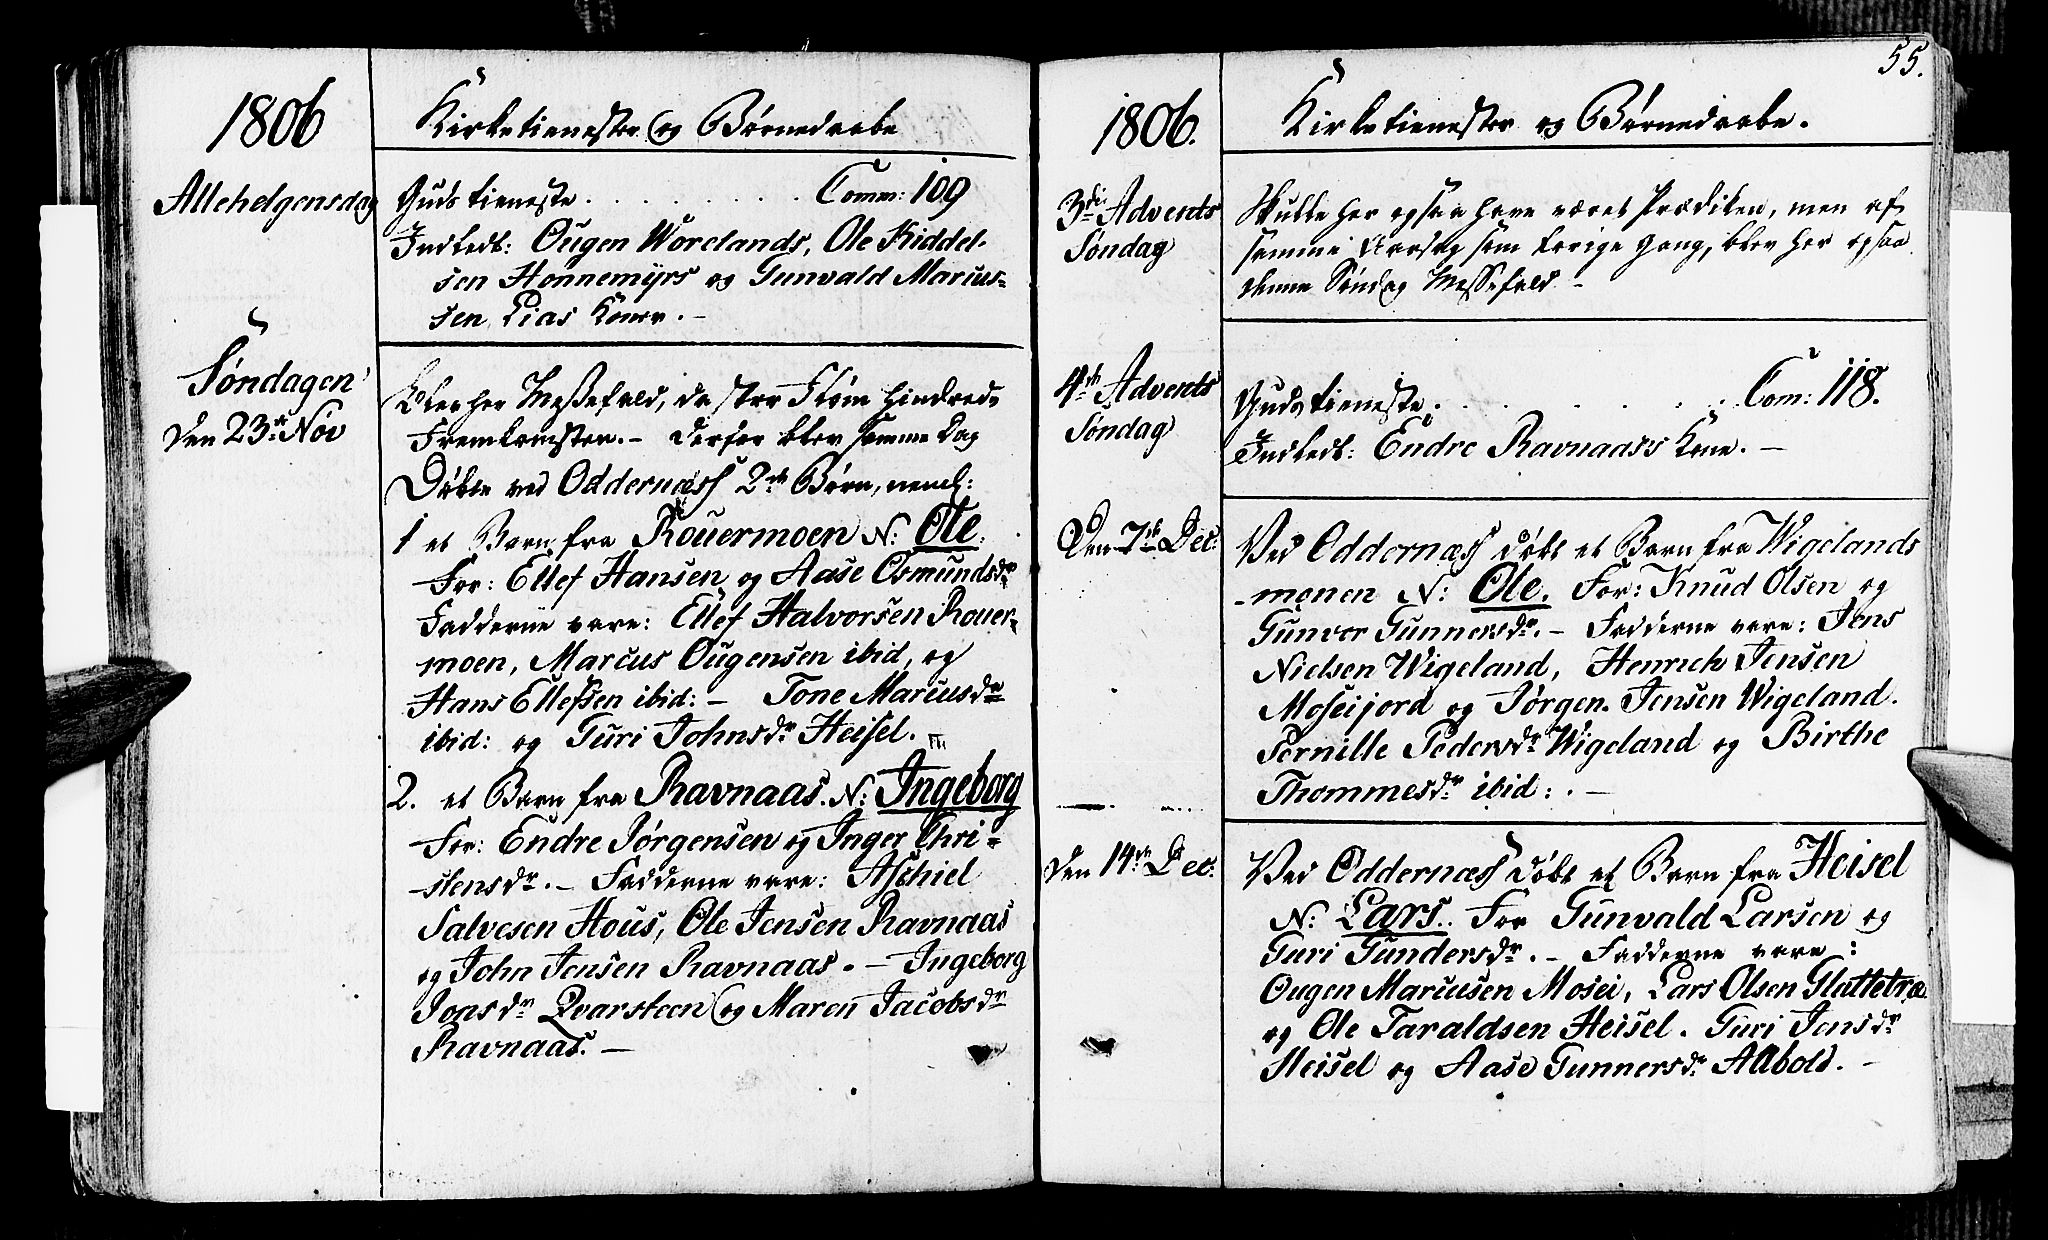 1806
Kirketienester og Børnedaabe
Allehelgensdag
Guds tieneste . . . . . . . . Comm: 109
Indledt: Ougen Worelands, Ole Kiddel-
sen Honnemyrs og Gunvald Marcus-
sen Lias Koner. -
Søndagen
den 23de Nov
Blev her Messefald, da stor Fløm hindrede
Fremkomsten. - derfor blev samme Dag
Døbte ved Oddernæss 2de Børn, neml:
1 et Barn fra Rouermoen N: Ole.
For: Ellef Hansen og Aase Osmundsdr
Fadderne vare: Ellef Halvorsen Rouer-
moen, Marcus Ougensen ibid, og
Hans Ellefsen ibid: - Tone Marcusdr
ibid: og Guri Johnsdr Heisel.
2. et Barn fra Ravnaas. N: Ingeborg
For: Endre Jørgensen og Inger Chri-
stensdr. - Fadderne vare: Aschiel
Salvesen Hous, Ole Jensen Ravnaas
og John Jensen Ravnaas. - Ingeborg
Jonsdr Qvarsteen og Maren Jacobsdr
Ravnaas. -
55.
1806.
Kirketienester og Børnedaabe.
3die Advents
Søndag
Skulle her ogsaa have været Prædiken, men af
samme Aarsag som forrige Gang, blev her ogsaa
denne Søndag Messefald -
4de Advents
Søndag
Guds tieneste . . . . . . Com: 118.
Indledt: Endre Ravnaas's Kone. -
Den 7de Dec:
Ved Oddernæss døbt et Barn fra Wigelands
-monen N: Ole. For: Knud Olsen og
Gunvor Gunnersdr. - Fadderne vare: Jens
Nielsen Wigeland, Henrich Jensen
Moseijord og Jørgen Jensen Wigeland.
Pernille Pedersdr Wigeland og Birthe
Thommesdr ibid: . -
Den 14de Dec:
Ved Oddernæss døbt et Barn fra Heisel
N: Lars. For Gunvald Larsen og
Guri Gundersdr. - Fadderne vare:
Ougen Marcusen Mosei, Lars Olsen Glattetræ
og Ole Taraldsen Heisel. Guri Jensdr
Heisel og Aase Gunnersdr Aabold. -